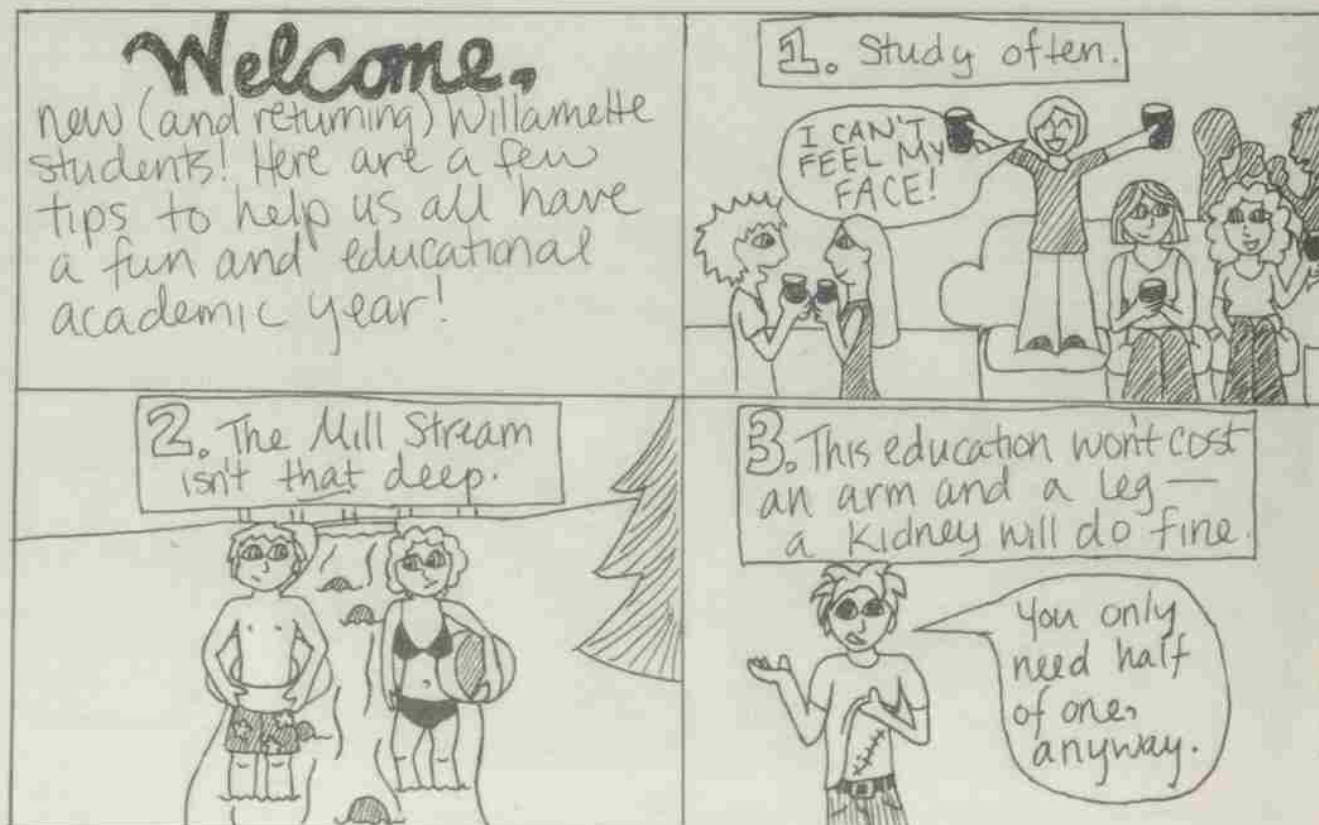 Welcome,
new (and returning) Willamette
students! Here are a few
tips to help us all have
a fun and educational
academic year!
1. Study often.
I CAN'T
FEEL MY
FACE!
2. The Mill Stream
isn't that deep.
3. This education won't cost
an arm and a leg—
a kidney will do fine.
You only
need half
of one,
anyway.